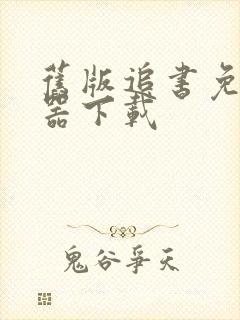 舊版追書免
器下載
鬼谷爭天